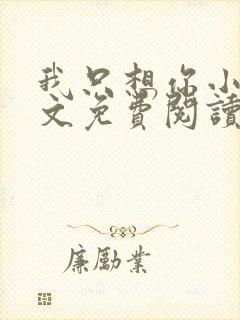 我只想你小
文免費閱讀
廉勵業